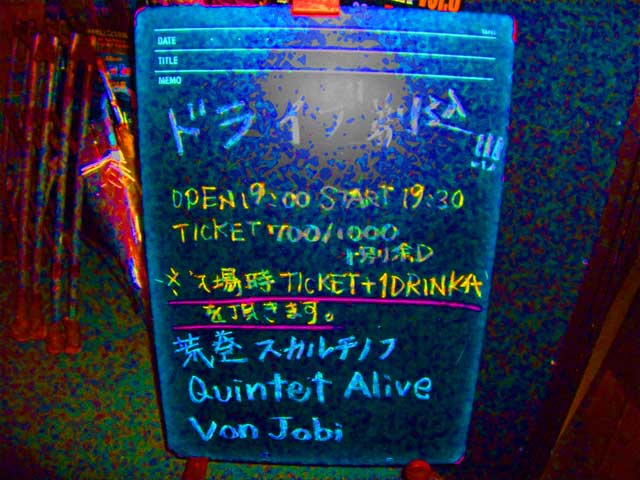 DATE
TITLE
MEMO
ドライブ
OPEN 19:00 START 19:30
TICKET 700/1000
1DRINK別
※入場時 TICKET+1DRINK
を頂きます。
荒巻スカルチノフ
Quintet Alive
Von Jobi